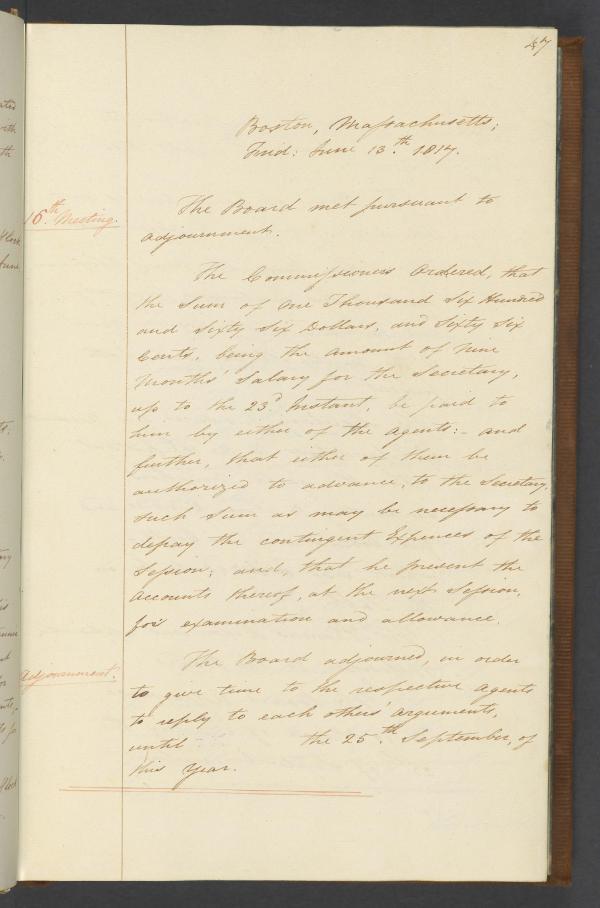 47
Boston, Massachusetts;
Frid: June 13.th 1817.
16.th Meeting.
The Board met pursuant to
adjournment.
The Commissioners Ordered, that
the Sum of One Thousand Six Hundred
and Sixty Six Dollars, and Sixty Six
Cents, being the amount of Nine
Months' Salary for the Secretary,
up to the 23.d Instant, be paid to
him by either of the Agents:- and
further, that either of them be
authorized to advance, to the Secretary,
such Sum as may be necessary to
defray the contingent Expences of the
Session; and, that he present the
Accounts thereof, at the next Session,
for examination and allowance.
Adjournment.
The Board adjourned, in order
to give time to the respective Agents
to reply to each others' arguments,
until the 25.th September, of
this Year.